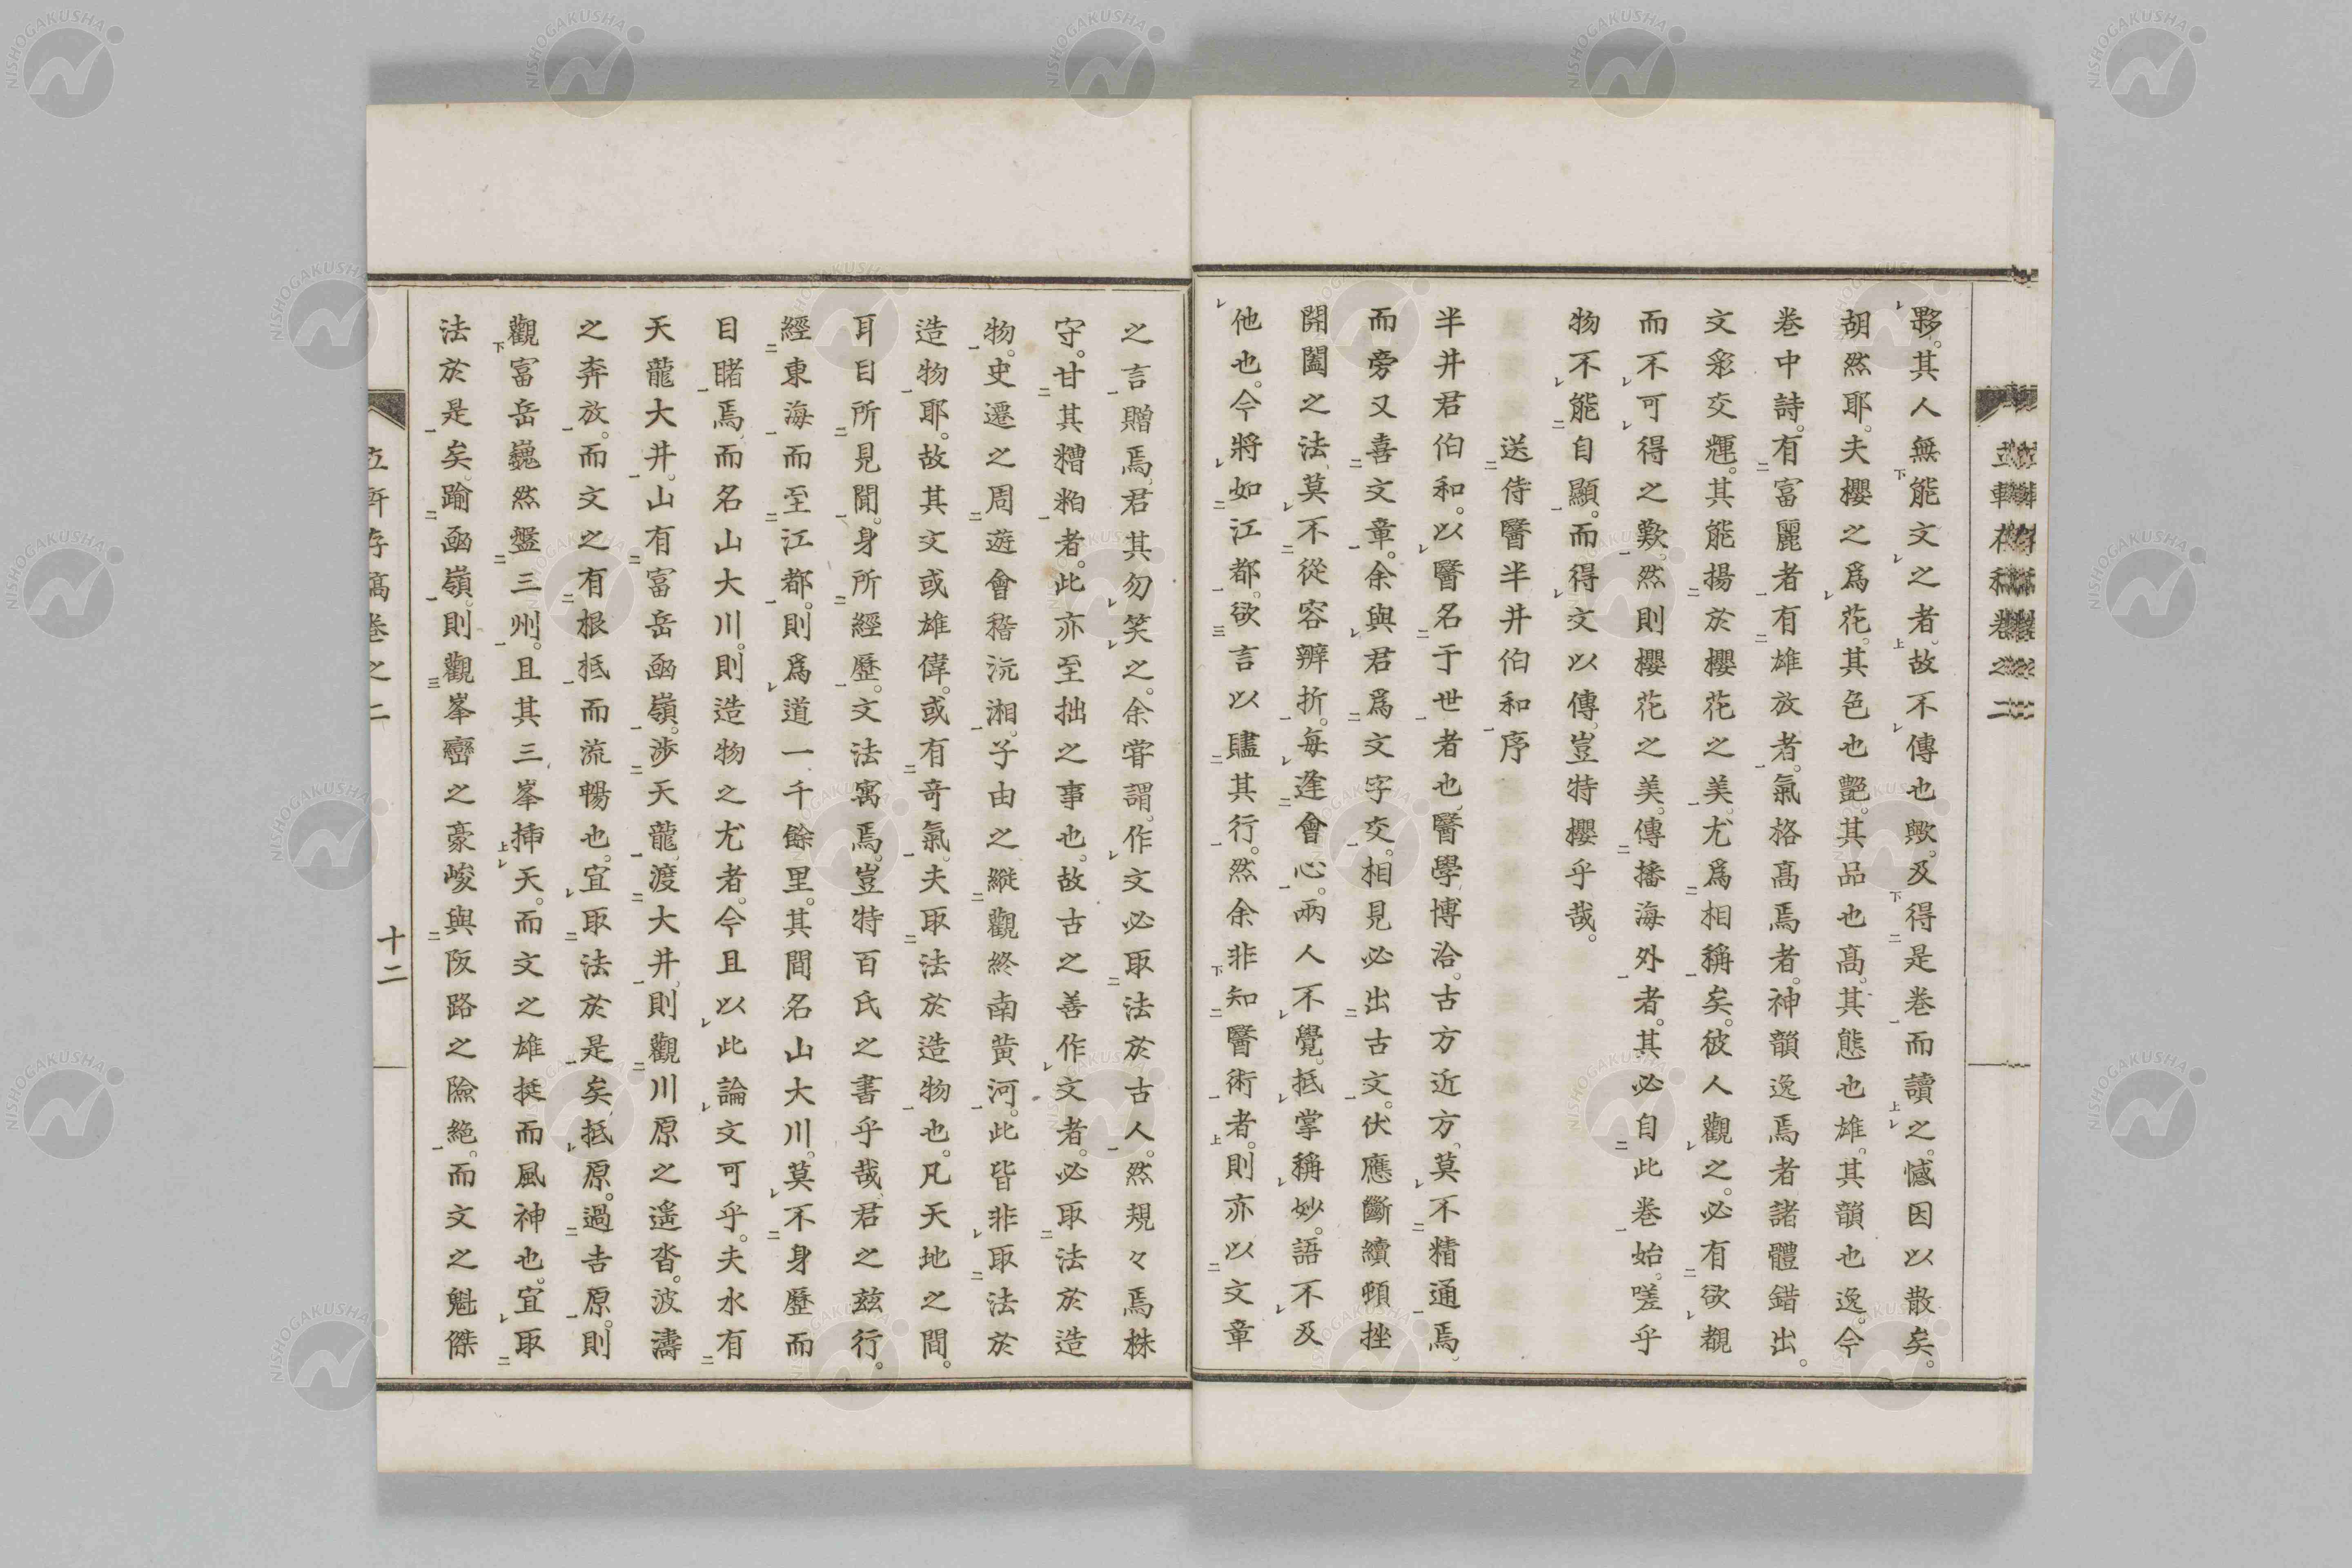 夥。其人無能文之者。故不傳也歟。及得是卷而讀之。憾因以散矣。
胡然耶。夫櫻之爲花。其色也艷。其品也高。其態也雄。其韻也逸。今
卷中詩。有富麗者有雄放者。氣格高焉者。神韻逸焉者諸體錯出。
文彩交輝。其能揚於櫻花之美。尤爲相稱矣。彼人觀之。必有欲覩
而不可得之歎。然則櫻花之美。傳播海外者。其必自此卷始。嗟乎
物不能自顯。而得文以傳。豈特櫻乎哉。
送侍醫半井伯和序
半井君伯和。以醫名于世者也。醫學博洽。古方近方。莫不精通焉。
而旁又喜文章。余與君爲文字交。相見必出古文。伏應斷續頓挫
開闔之法。莫不從容辨折。每逢會心。兩人不覺。抵掌稱妙。語不及
他也。今將如江都。欲言以贐其行。然余非知醫術者。則亦以文章
之言贈焉。君其勿笑之。余嘗謂。作文必取法於古人。然規々焉株
守。甘其糟粕者。此亦至拙之事也。故古之善作文者。必取法於造
物。史遷之周遊會稽沅湘。子由之縱觀終南黄河。此皆非取法於
造物耶。故其文或雄偉。或有奇氣。夫取法於造物也。凡天地之間。
耳目所見聞。身所經歷。文法寓焉。豈特百氏之書乎哉。君之茲行。
經東海而至江都。則爲道一千餘里。其間名山大川。莫不身歷而
目睹焉。而名山大川。則造物之尤者。今且以此論文可乎。夫水有
天龍大井。山有富岳凾嶺。渉天龍渡大井。則觀川原之遥沓。波濤
之奔放。而文之有根抵而流暢也。宜取法於是矣。抵原。過吉原。則
觀富岳巍然盤三州。且其三峯揷天。而文之雄挺而風神也。宜取
法於是矣。踰凾嶺。則觀峯巒之豪峻與阪路之險絶。而文之魁傑
十二